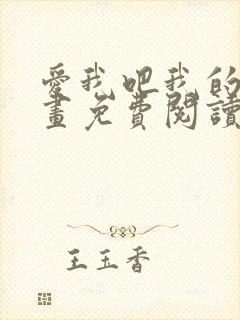 愛我吧我的
畫免費閱讀
王玉香